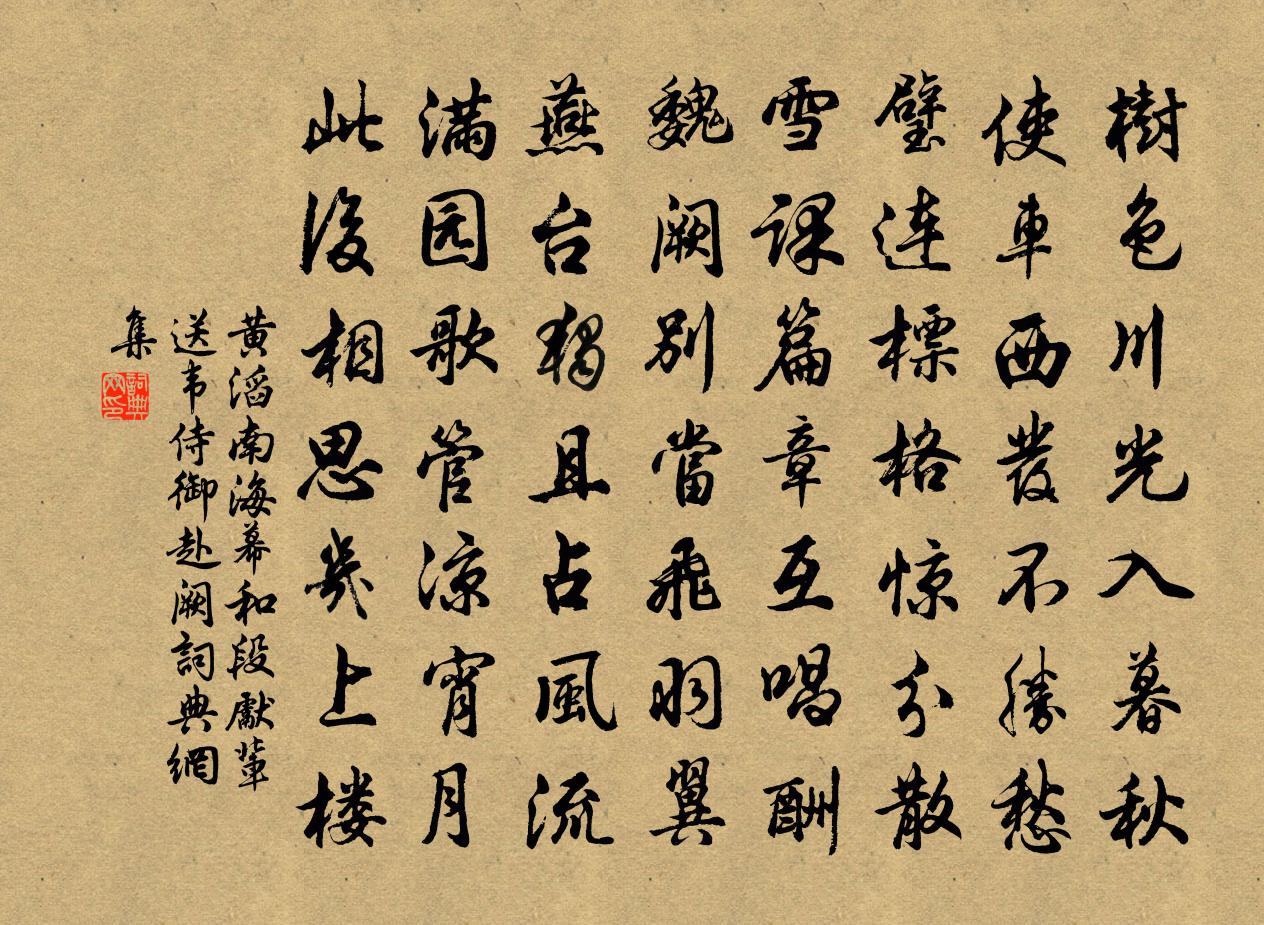 樹色川光入暮秋
使車西發不勝愁
璧連標格惊分散
雪課篇章互唱酬
魏阙别當飛羽翼
燕台独且占風流
满园歌管涼宵月
此後相思幾上楼
黄滔南海幕和段獻輩
送韦侍御赴阙詞典網
集
詞典網印